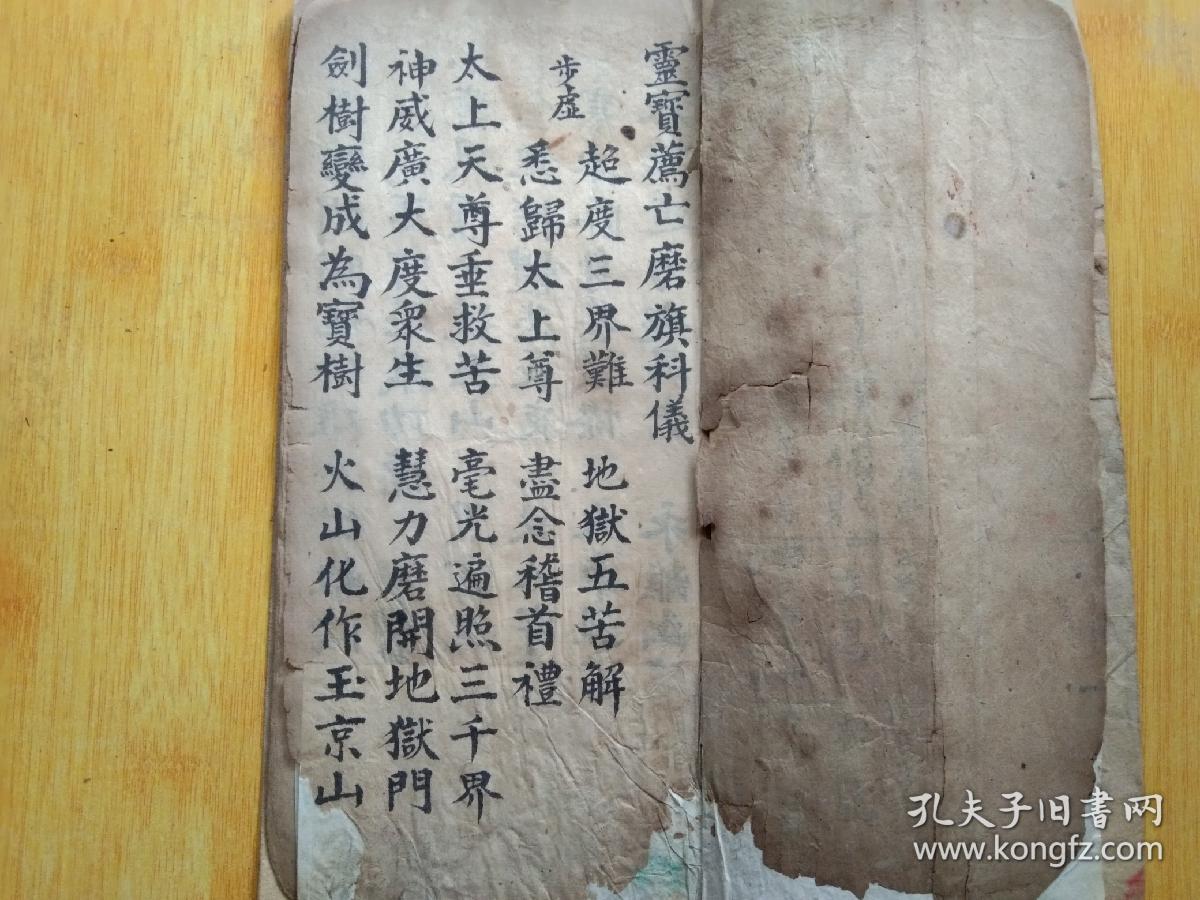 靈寶薦亡磨旗科儀
步虛
超度三界難 地獄五苦解
悉歸太上尊 盡念稽首禮
太上天尊垂救苦 毫光遍照三千界
神威廣大度衆生 慧力磨開地獄門
劍樹變成為寶樹 火山化作玉京山
孔夫子旧书网
www.kongfz.com